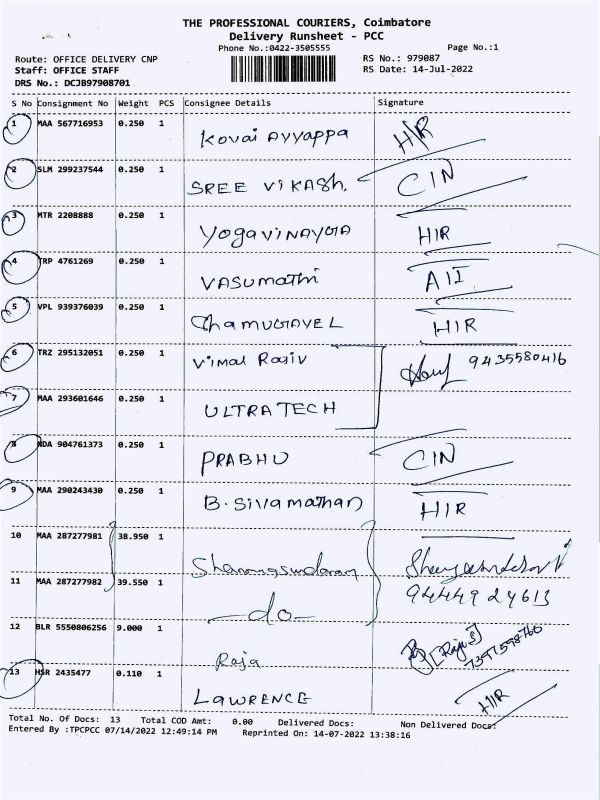 THE PROFESSIONAL COURIERS, Coimbatore
Delivery Runsheet - PCC
Phone No.:0422-3505555 Page No.:1
Route: OFFICE DELIVERY CNP RS No.: 979087
Staff: OFFICE STAFF RS Date: 14-Jul-2022
DRS No.: DCJB97908701
S No Consignment No Weight PCS Consignee Details Signature
1 MAA 567716953 0.250 1 Kovai Ayyappa HIR
2 SLM 299237544 0.250 1 SREE VIKASH. CIN
3 MTR 2208888 0.250 1 YOGAVINAYGA HIR
4 TRP 4761269 0.250 1 VASUMATHI AII
5 VPL 939376039 0.250 1 HIR
6 TRZ 295132051 0.250 1 Vimal Rajiv 9435580416
7 MAA 293601646 0.250 1 ULTRATECH
8 NDA 904761373 0.250 1 PRABHU CIN
9 MAA 290243430 0.250 1 B. Sivamathan HIR
10 MAA 287277981 38.950 1 Shanmugsundaram
11 MAA 287277982 39.550 1 -do- 94449 24613
12 BLR 5550806256 9.000 1 Raja [Raju S] 7397598760
13 HSR 2435477 0.110 1 LAWRENCE HIR
Total No. Of Docs: 13 Total COD Amt: 0.00 Delivered Docs: Non Delivered Docs:
Entered By :TPCPCC 07/14/2022 12:49:14 PM Reprinted On: 14-07-2022 13:38:16